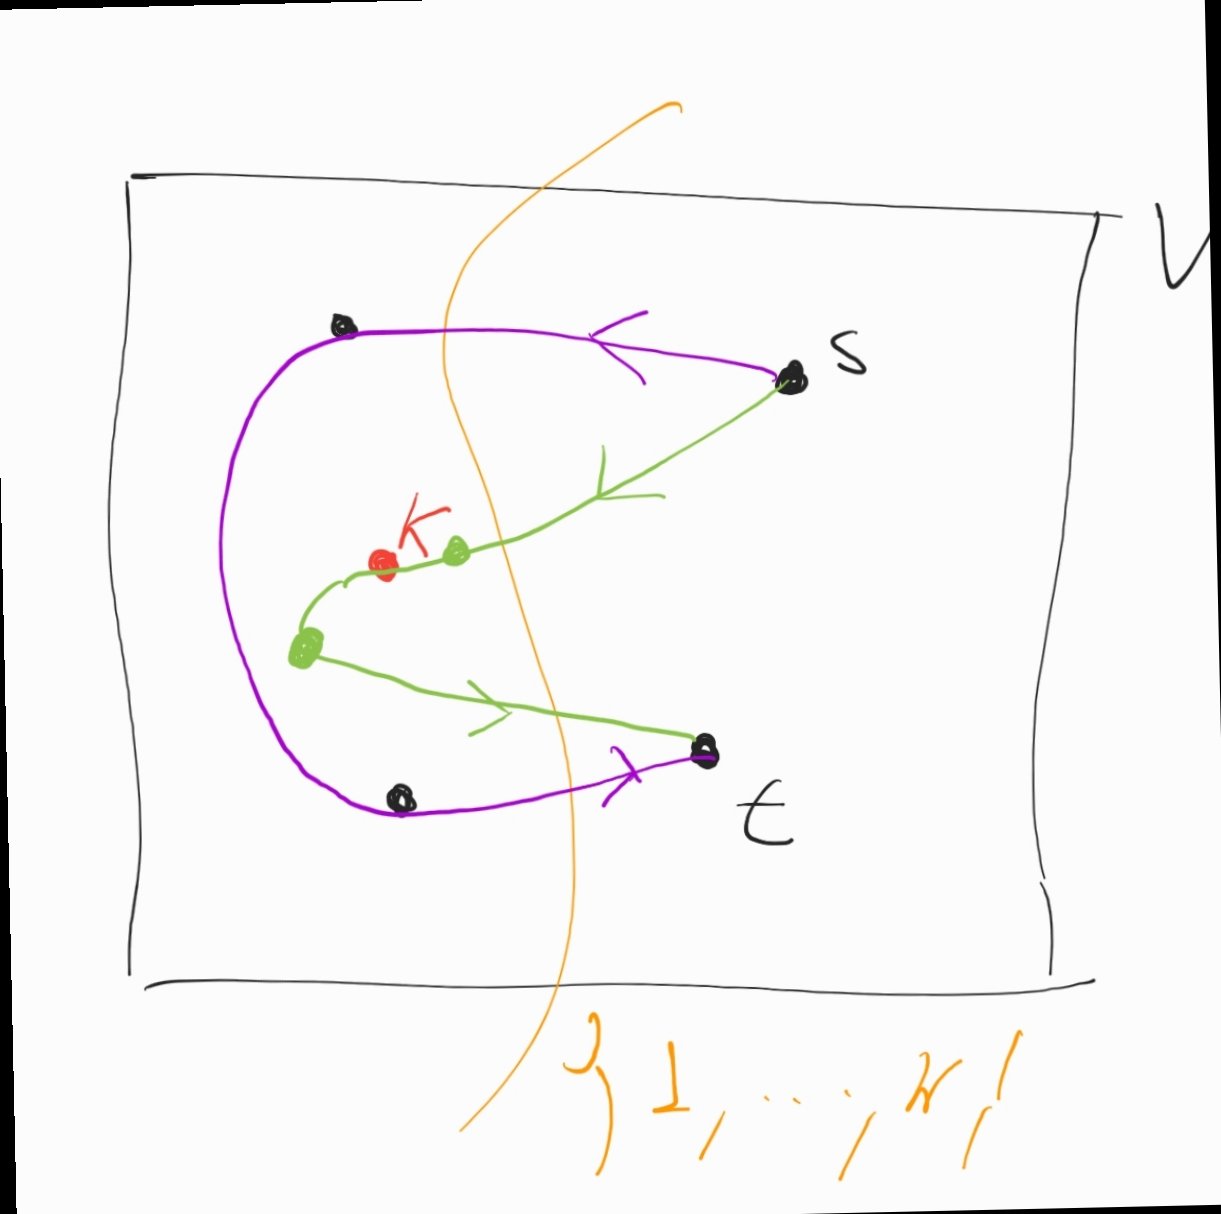 V
s
K
t
{1, ..., k}